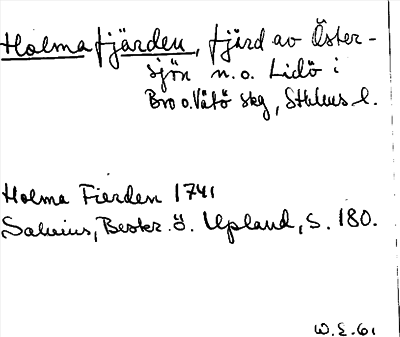 Holmafjärden, fjärd av Öster-
sjön n.o. Lidö i
Bro o. Vätö skg, Sthlms l.
Holma Fierden 1741
Salvius, Beskr. ö. Upland, S. 180.
W.E.61